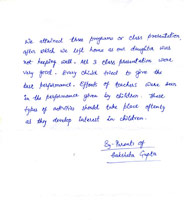 We attained three programs or class presentation,
after which we left home as our daughter was
not keeping well. All 3 class presentation were
very good. Every child tried to give the
best performance. Efforts of teachers were seen
in the performance given by children. These
types of activities should take place oftenly
as they develop interest in children.
By:- Parents of
Gupta